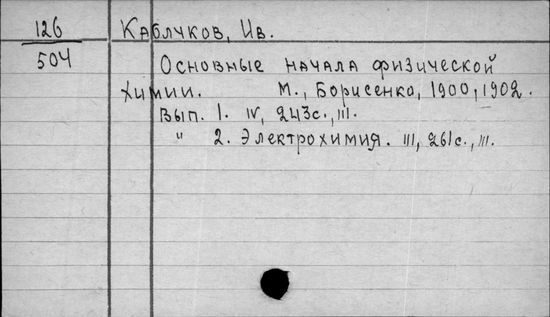 126 Каблуков, Ив.
504 Основные начала физической
химии. М., Борисенко, 1900, 1902.
Вып. 1. IV, 243с., III.
" 2. Электрохимия. III, 261с., III.